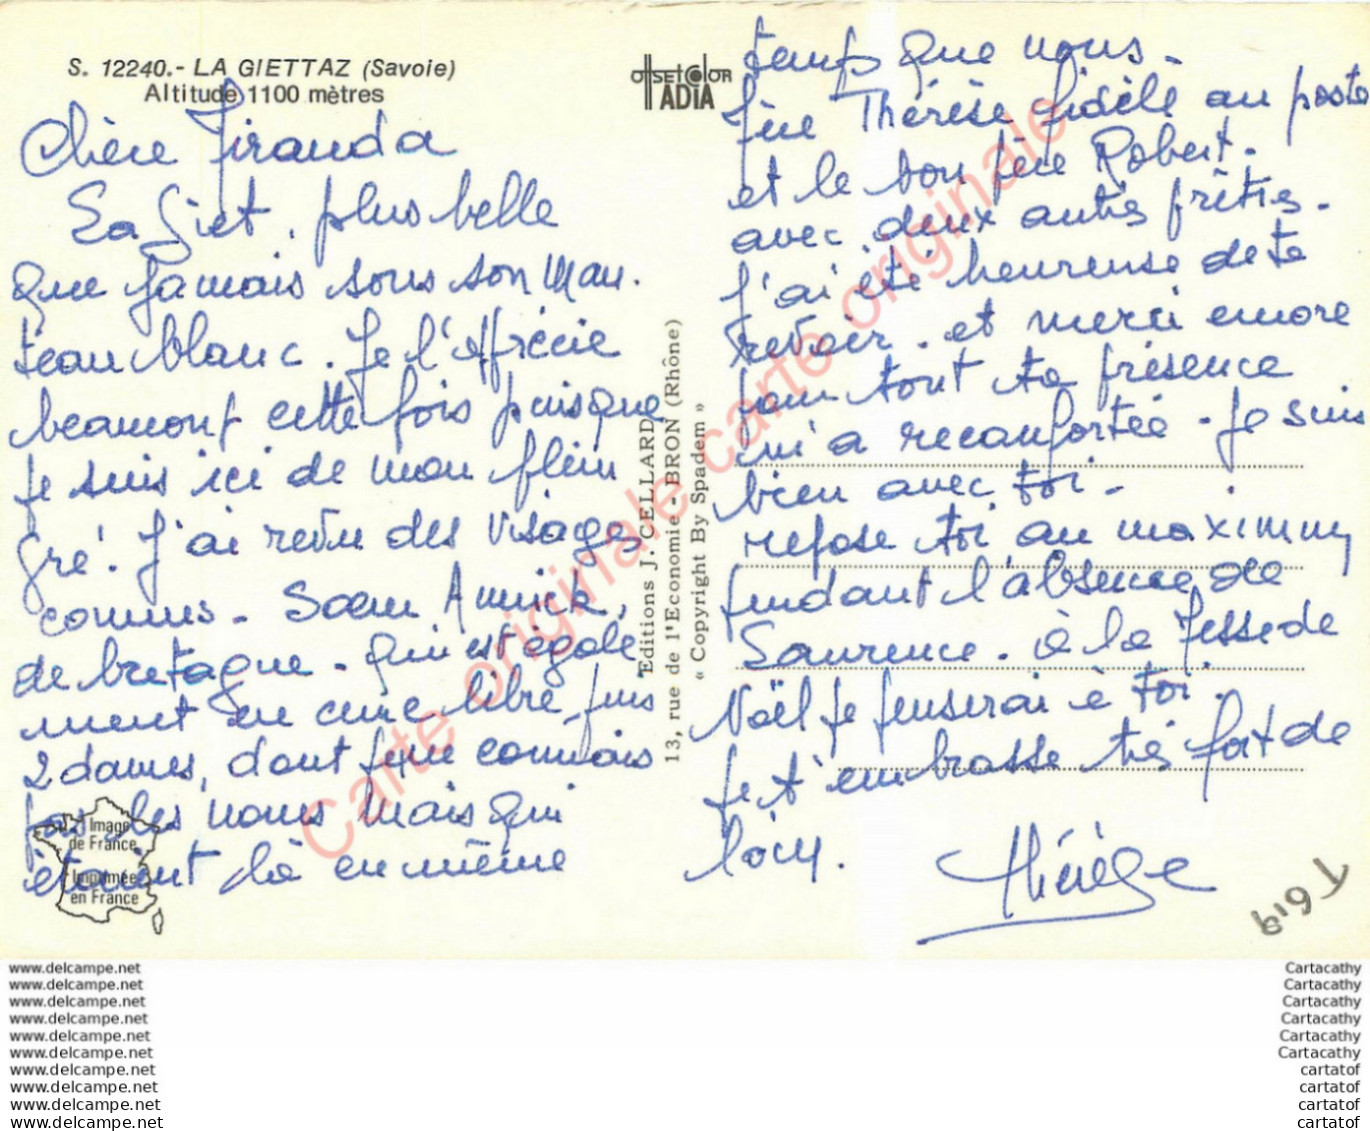 S. 12240.- LA GIETTAZ (Savoie)
Altitude 1100 mètres
OFFSETCOLOR
ADIA
Chère Jiranda
La Giet, plus belle
que jamais sous son man.
teau blanc. Je l'apprécie
beaucoup cette fois puisque
je suis ici de mon plein
gré. J'ai revu des visages
connus. Sœur Annick,
de bretagne. qui est égale
ment en cure libre, puis
2 dames, dont je ne connais
pas les noms mais qui
étaient là en même
temps que nous.
Thérèse fidèle au poste
et le bon père Robert.
avec deux autres prêtres.
J'ai été heureuse de te
revoir. et merci encore
pour tout ta présence
m'a reconfortée. Je suis
bien avec toi.
repose toi au maximum
pendant l'absence de
Laurence. à la Messe de
Noël je penserai à toi.
Je t'embrasse très fort de
loin.
Thérèse
Image
de France
Imprimée
en France
Editions J. CELLARD
13, rue de l'Economie - BRON (Rhône)
« Copyright By Spadem »
Carte originale carte originale
www.delcampe.net
www.delcampe.net
www.delcampe.net
www.delcampe.net
www.delcampe.net
www.delcampe.net
www.delcampe.net
www.delcampe.net
www.delcampe.net
www.delcampe.net
Cartacathy
Cartacathy
Cartacathy
Cartacathy
Cartacathy
Cartacathy
cartatof
cartatof
cartatof
cartatof